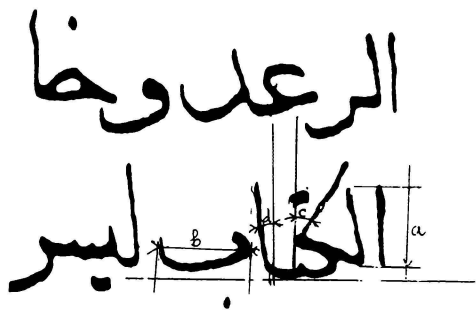 الرعد وخا
الكتاب ليسر
d c
b a